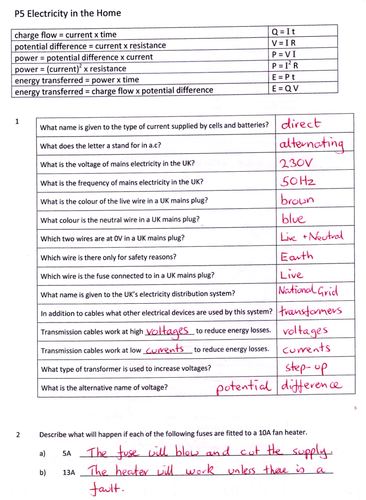 P5 Electricity in the Home
charge flow = current x time Q = I t
potential difference = current x resistance V = I R
power = potential difference x current P = V I
power = (current)² x resistance P = I² R
energy transferred = power x time E = P t
energy transferred = charge flow x potential difference E = Q V
1
What name is given to the type of current supplied by cells and batteries? direct
What does the letter a stand for in a.c? alternating
What is the voltage of mains electricity in the UK? 230V
What is the frequency of mains electricity in the UK? 50Hz
What is the colour of the live wire in a UK mains plug? brown
What colour is the neutral wire in a UK mains plug? blue
Which two wires are at 0V in a UK mains plug? Live + Neutral
Which wire is there only for safety reasons? Earth
Which wire is the fuse connected to in a UK mains plug? Live
What name is given to the UK's electricity distribution system? National Grid
In addition to cables what other electrical devices are used by this system? transformers
Transmission cables work at high voltages to reduce energy losses. voltages
Transmission cables work at low currents to reduce energy losses. currents
What type of transformer is used to increase voltages? step-up
What is the alternative name of voltage? potential difference
2 Describe what will happen if each of the following fuses are fitted to a 10A fan heater.
a) 5A The fuse will blow and cut the supply.
b) 13A The heater will work unless there is a
fault.